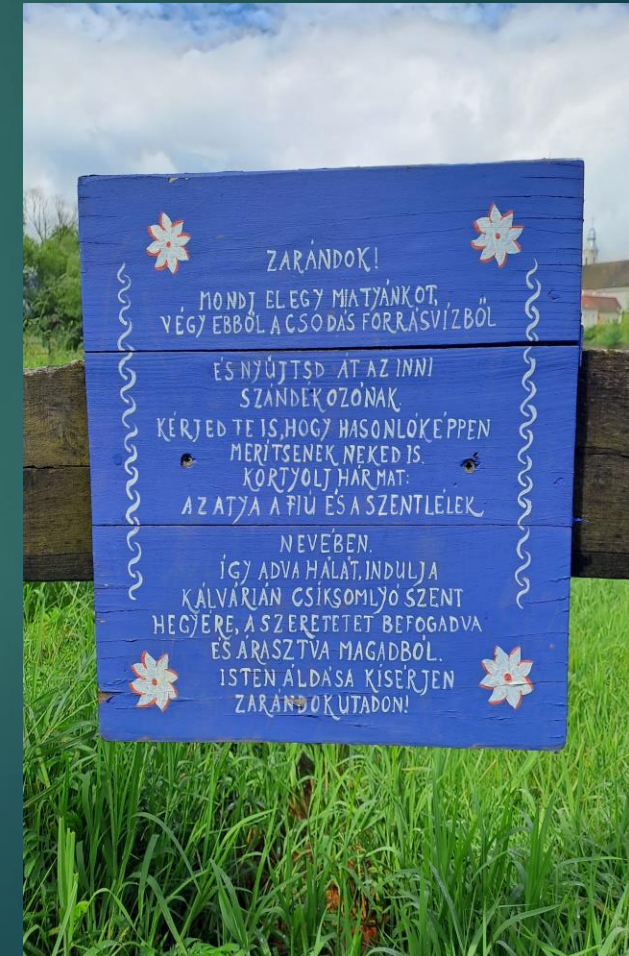 ZARÁNDOK!
MONDJ EL EGY MIATYÁNKOT,
VÉGY EBBŐL A CSODÁS FORRÁSVÍZBŐL
ÉS NYÚJTSD ÁT AZ INNI
SZÁNDÉKOZÓNAK.
KÉRJED TE IS, HOGY HASONLÓKÉPPEN
MERÍTSENEK NEKED IS.
KORTYOLJ HÁRMAT:
AZ ATYA A FIÚ ÉS A SZENTLÉLEK
NEVÉBEN.
ÍGY ADVA HÁLÁT, INDULJ A
KÁLVÁRIÁN CSÍKSOMLYÓ SZENT
HEGYÉRE, A SZERETETET BEFOGADVA
ÉS ÁRASZTVA MAGADBÓL.
ISTEN ÁLDÁSA KÍSÉRJEN
ZARÁNDOKUTADON!